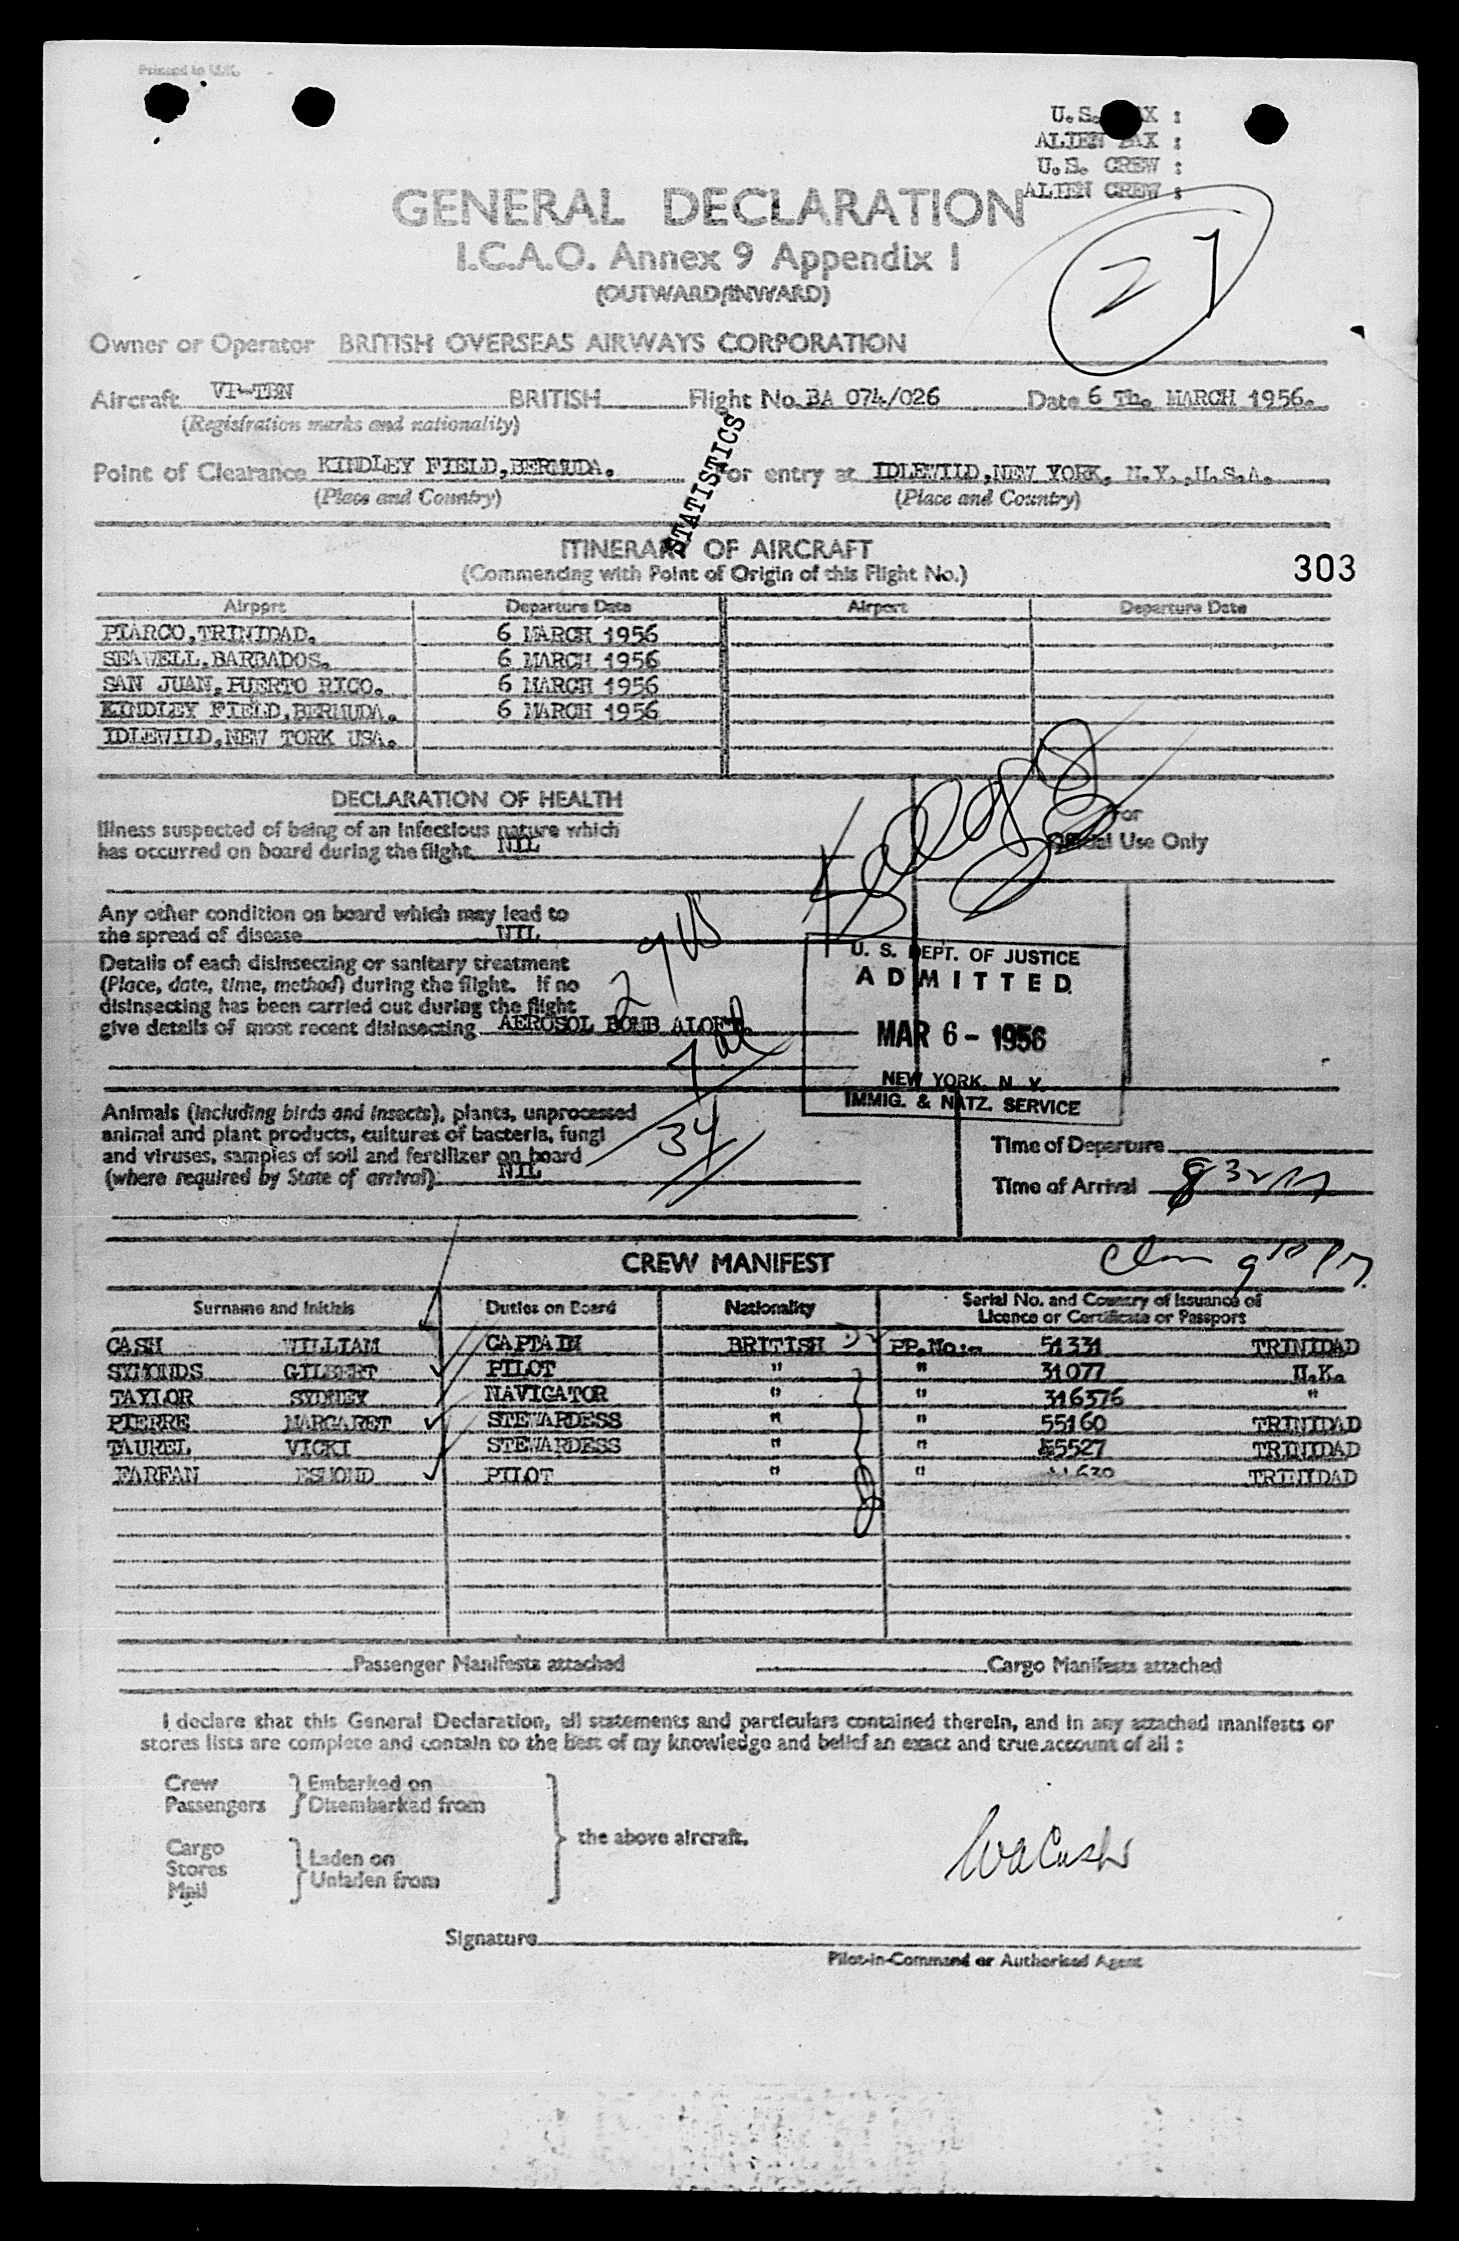 Printed in U.K.
U.S. PAX :
ALIEN PAX :
U.S. CREW :
ALIEN CREW :
GENERAL DECLARATION
I.C.A.O. Annex 9 Appendix 1
(OUTWARD/INWARD)
27
Owner or Operator BRITISH OVERSEAS AIRWAYS CORPORATION
Aircraft VP-TBN BRITISH Flight No. BA 074/026 Date 6 Th. MARCH 1956.
(Registration marks and nationality)
Point of Clearance KINDLEY FIELD, BERMUDA. For entry at IDLEWILD, NEW YORK, N.Y., U.S.A.
(Place and Country) (Place and Country)
STATISTICS
ITINERARY OF AIRCRAFT
(Commencing with Point of Origin of this Flight No.)
303
Airport Departure Date Airport Departure Date
PIARCO, TRINIDAD. 6 MARCH 1956
SEAWELL, BARBADOS. 6 MARCH 1956
SAN JUAN, PUERTO RICO. 6 MARCH 1956
KINDLEY FIELD, BERMUDA. 6 MARCH 1956
IDLEWILD, NEW TORK USA.
DECLARATION OF HEALTH
Illness suspected of being of an infectious nature which
has occurred on board during the flight NIL
For
Official Use Only
Any other condition on board which may lead to
the spread of disease NIL
Details of each disinsecting or sanitary treatment
(Place, date, time, method) during the flight. If no
disinsecting has been carried out during the flight
give details of most recent disinsecting AEROSOL BOMB ALOFT.
34
U. S. DEPT. OF JUSTICE
ADMITTED
MAR 6 - 1956
NEW YORK, N. Y.
IMMIG. & NATZ. SERVICE
Animals (including birds and insects), plants, unprocessed
animal and plant products, cultures of bacteria, fungi
and viruses, samples of soil and fertilizer on board
(where required by State of arrival) NIL
Time of Departure
Time of Arrival
CREW MANIFEST
Surname and Initials Duties on Board Nationality Serial No. and Country of Issuance of
Licence or Certificate or Passport
CASH WILLIAM CAPTAIN BRITISH PP.No:- 51331 TRINIDAD
SYMONDS GILBERT PILOT " " 31077 U.K.
TAYLOR SYDNEY NAVIGATOR " " 316376 "
PIERRE MARGARET STEWARDESS " " 55160 TRINIDAD
TAUREL VICKI STEWARDESS " " 55527 TRINIDAD
FARFAN ESMOND PILOT " " TRINIDAD
Passenger Manifests attached Cargo Manifests attached
I declare that this General Declaration, all statements and particulars contained therein, and in any attached manifests or
stores lists are complete and contain to the best of my knowledge and belief an exact and true account of all :
Crew Embarked on
Passengers Disembarked from
the above aircraft.
Cargo
Stores Laden on
Mail Unladen from
WACash
Signature
Pilot-in-Command or Authorised Agent